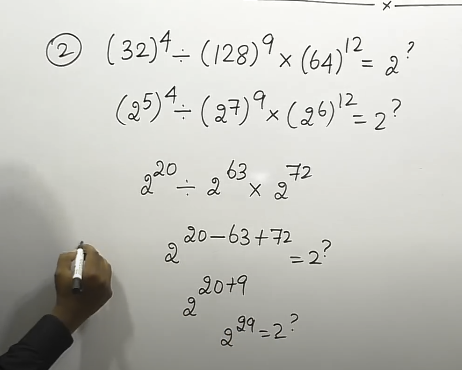 ② (32)⁴ ÷ (128)⁹ × (64)¹² = 2^?
(2⁵)⁴ ÷ (2⁷)⁹ × (2⁶)¹² = 2^?
2²⁰ ÷ 2⁶³ × 2⁷²
2^20-63+72 = 2^?
2^20+9
2²⁹ = 2^?